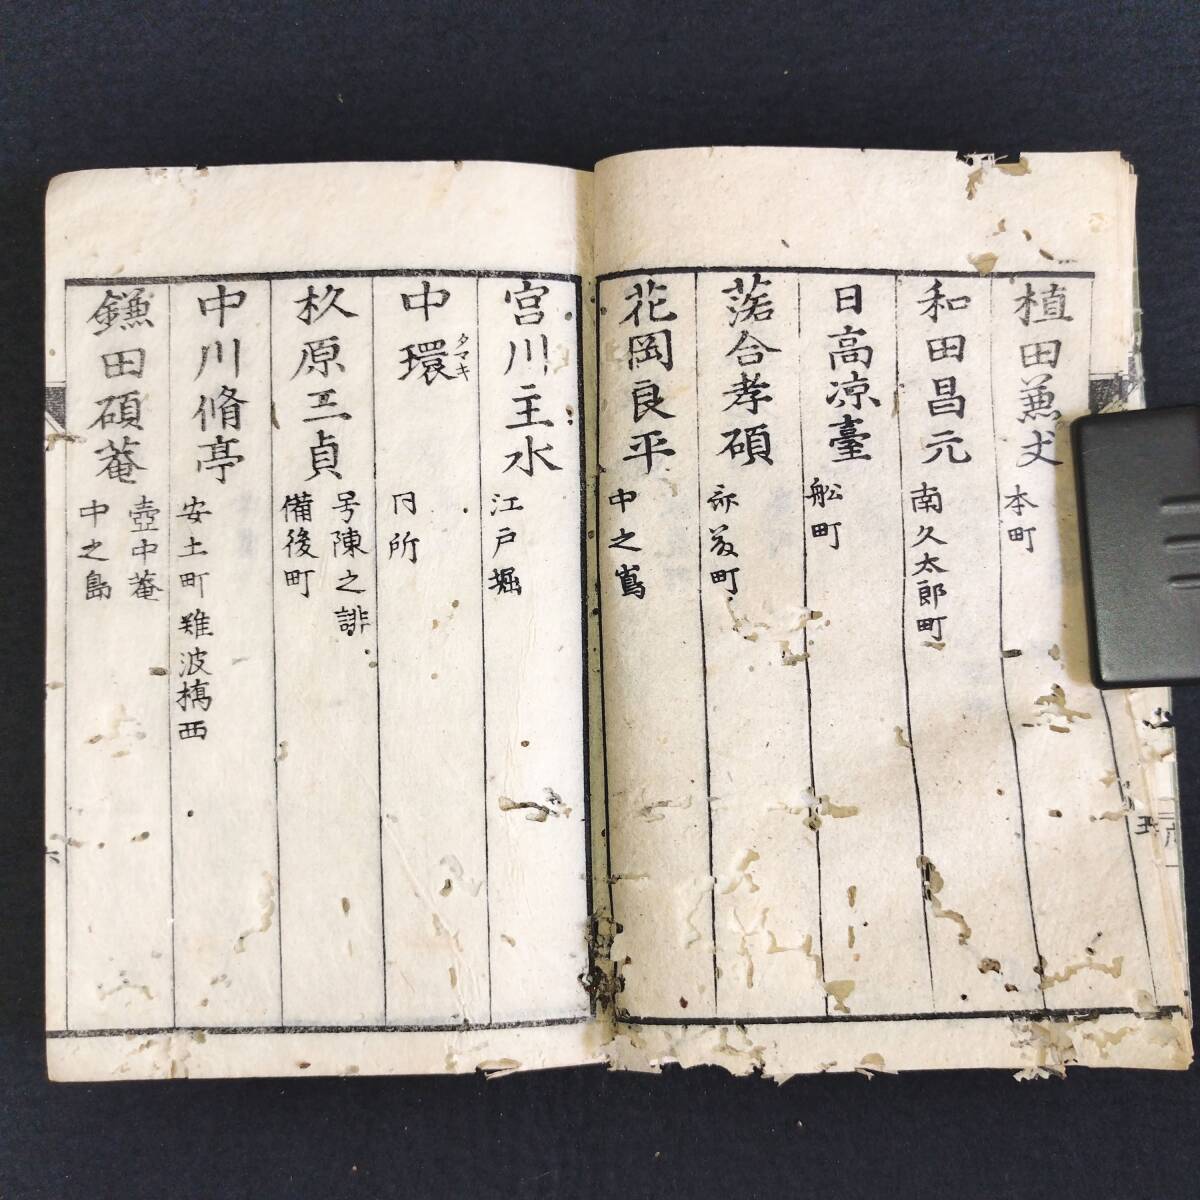 植田兼丈
本町
和田昌元
南久太郎町
日高凉臺
舩町
落合孝碩
町
花岡良平
中之嶌
宮川主水
江戸堀
中環
タマキ
同所
杦原三貞
号陳之誹
備後町
中川脩亭
安土町難波橋西
鎌田碩菴
壺中菴
中之島
六